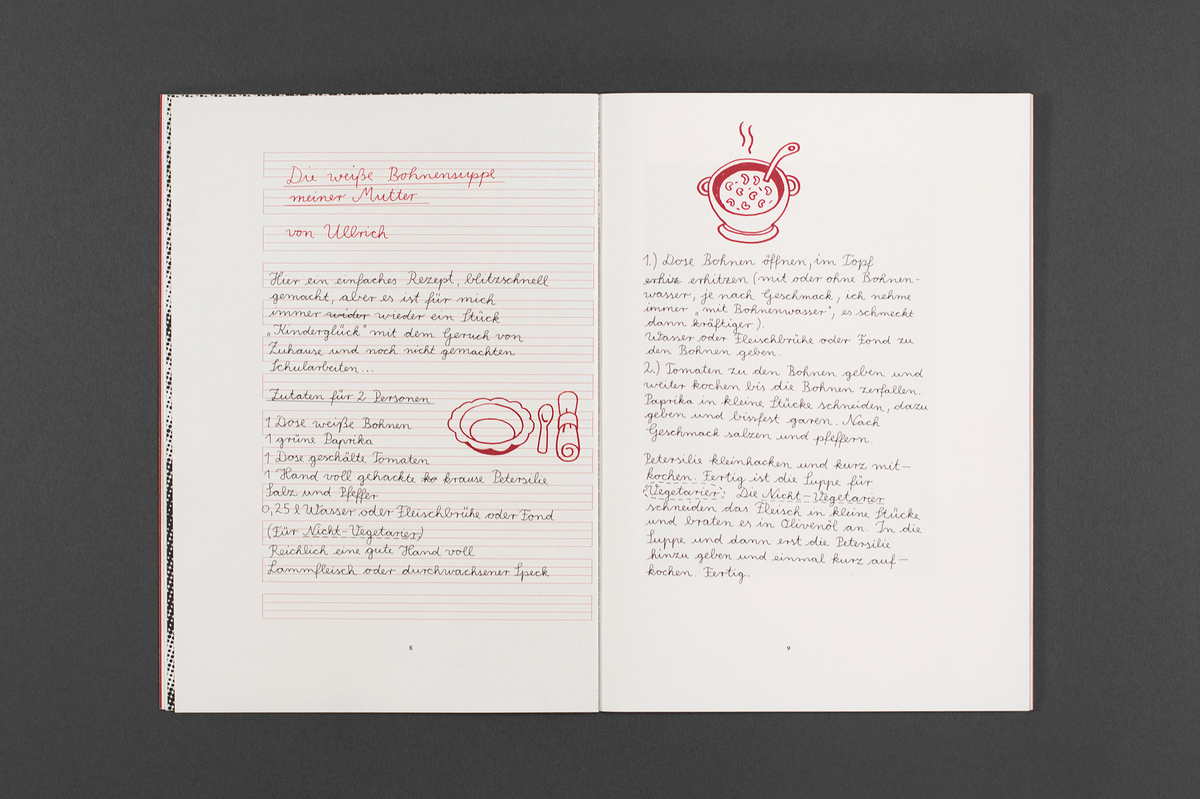 Die weiße Bohnensuppe
meiner Mutter
von Ullrich
Hier ein einfaches Rezept, blitzschnell
gemacht, aber es ist für mich
immer wider wieder ein Stück
„Kinderglück" mit dem Geruch von
Zuhause und noch nicht gemachten
Schularbeiten...
Zutaten für 2 Personen
1 Dose weiße Bohnen
1 grüne Paprika
1 Dose geschälte Tomaten
1 Hand voll gehackte kr krause Petersilie
Salz und Pfeffer
0,25 l Wasser oder Fleischbrühe oder Fond
(Für Nicht-Vegetarier)
Reichlich eine gute Hand voll
Lammfleisch oder durchwachsener Speck
8
1.) Dose Bohnen öffnen, im Topf
erhiz erhitzen (mit oder ohne Bohnen-
wasser, je nach Geschmack, ich nehme
immer „mit Bohnenwasser", es schmeckt
dann kräftiger).
Wasser oder Fleischbrühe oder Fond zu
den Bohnen geben.
2.) Tomaten zu den Bohnen geben und
weiter kochen bis die Bohnen zerfallen.
Paprika in kleine Stücke schneiden, dazu
geben und bissfest garen. Nach
Geschmack salzen und pfeffern.
Petersilie kleinhacken und kurz mit-
kochen. Fertig ist die Suppe für
(Vegetarier). Die Nicht-Vegetarier
schneiden das Fleisch in kleine Stücke
und braten es in Olivenöl an. In die
Suppe und dann erst die Petersilie
hinzu geben und einmal kurz auf-
kochen. Fertig.
9